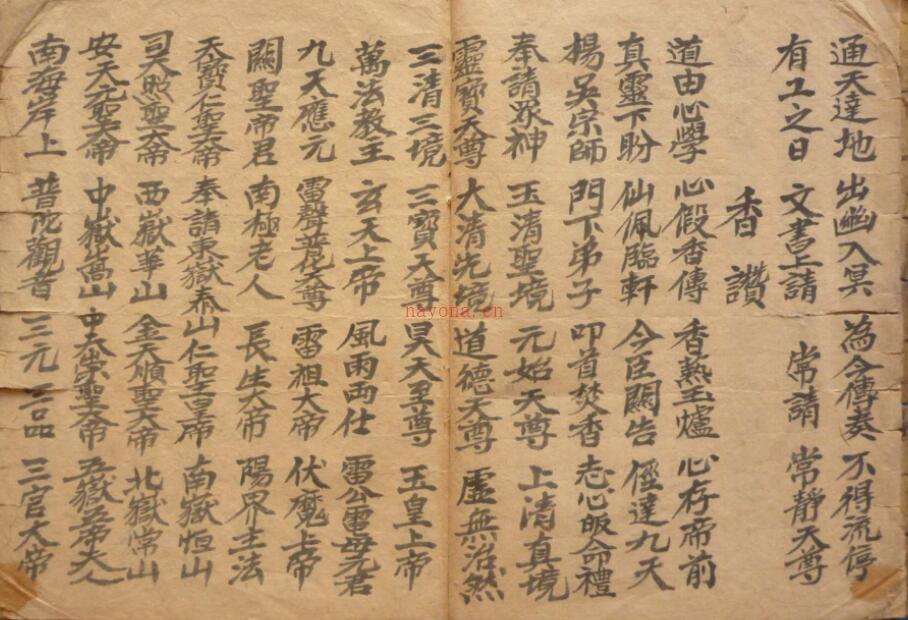 通天達地 出幽入冥 為今傳奏 不得流停
有工之日 文書上請 常請 常靜天尊
香讚
道由心學 心假香傳 香熱玉爐 心存帝前
真靈下盼 仙佩臨軒 今臣關告 徑達九天
楊吳宗師 門下弟子 叩首焚香 志心皈命禮
奉請眾神 玉清聖境 元始天尊 上清真境
靈寶天尊 大清先境 道德天尊 虛無治然
三清三境 三寶天尊 昊天至尊 玉皇上帝
萬法教王 玄天上帝 風雨兩仕 雷公電母元君
九天應元 雷聲普化天尊 雷祖大帝 伏魔上帝
關聖帝君 南極老人 長生大帝 陽界主法
天寶仁聖大帝 奉請東嶽泰山仁聖皇帝 南嶽恒山
司天照聖大帝 西嶽華山 金天順聖大帝 北嶽常山
安天元聖大帝 中嶽嵩山 中天崇聖大帝 五嶽五帝夫人
南海岸上 普陀觀音 三元三品 三官大帝
nayona.cn